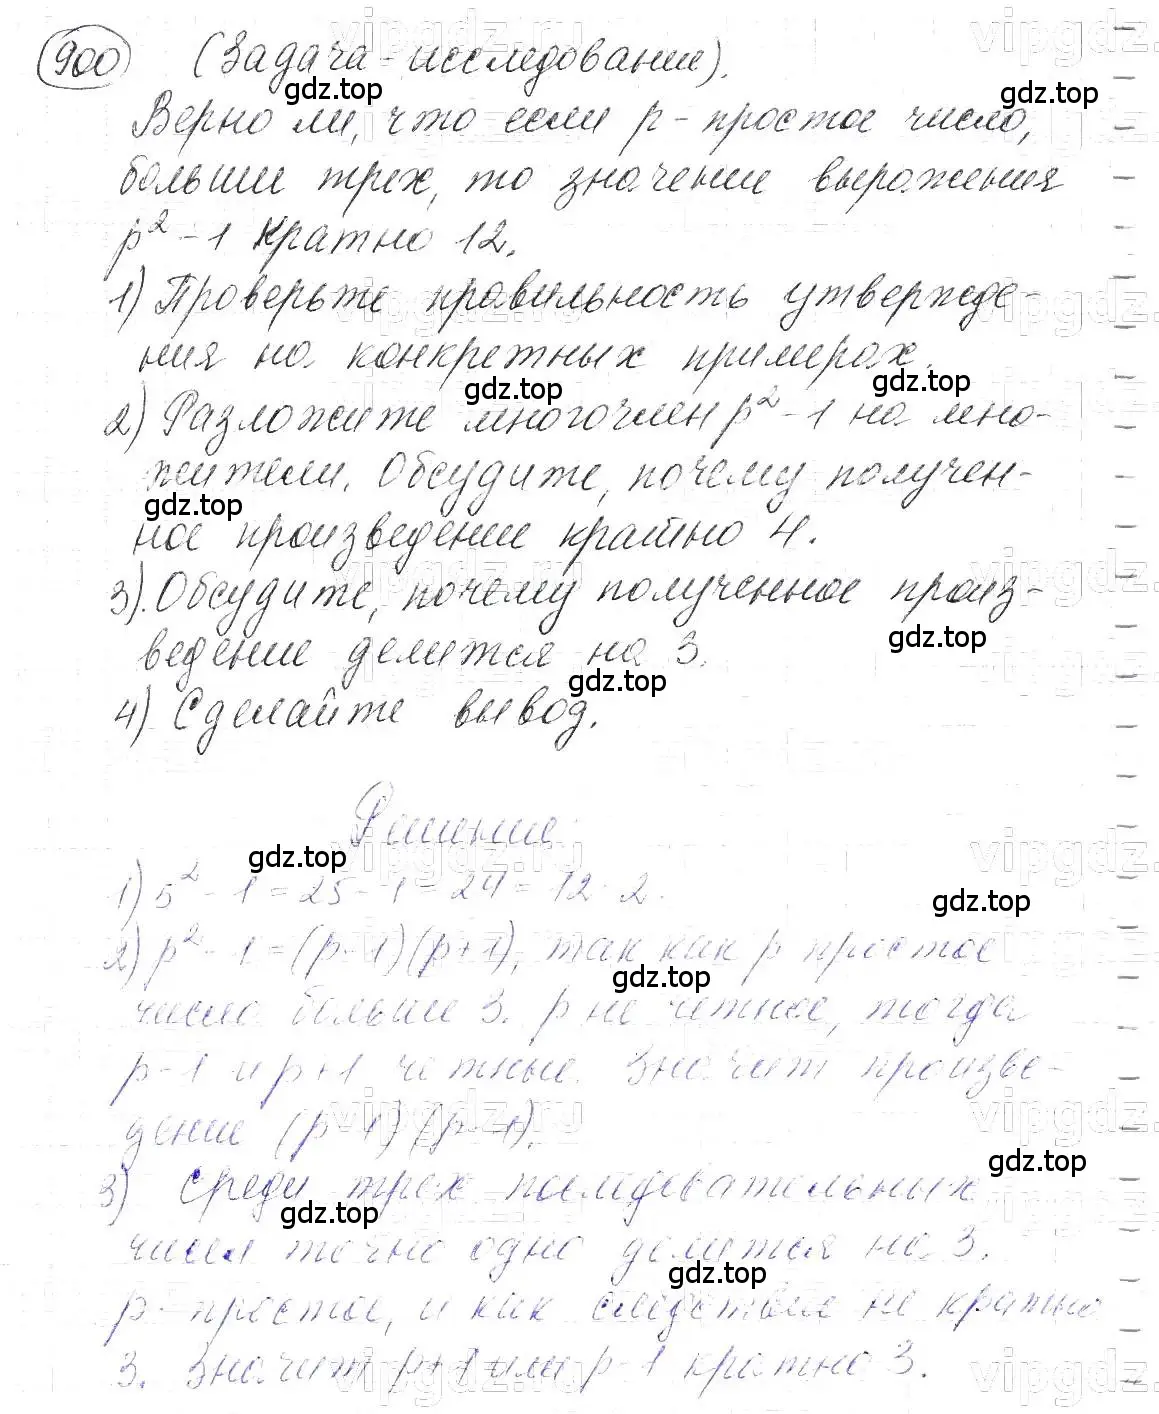 900 (Задача-исследование).
Верно ли, что если p - простое число,
больше трех, то значение выражения
p² - 1 кратно 12.
1) Проверьте правильность утвержде-
ния на конкретных примерах.
2) Разложите многочлен p² - 1 на мно-
жители. Обсудите, почему получен-
ное произведение кратно 4.
3). Обсудите, почему полученное произ-
ведение делится на 3.
4) Сделайте вывод.
Решение:
1) 5² - 1 = 25 - 1 = 24 = 12 · 2.
2) p² - 1 = (p-1)(p+1), так как p простое
число больше 3. p не четное, тогда
p-1 и p+1 четные. Значит произве-
дение (p-1)(p+1).
3) Среди трех последовательных
чисел точно одно делится на 3.
p - простое, и как следствие не кратно
3. Значит p+1 или p-1 кратно 3.
gdz.top
gdz.top
gdz.top
gdz.top
gdz.top
gdz.top
gdz.top
gdz.top
gdz.top
gdz.top
gdz.top
gdz.top
gdz.top
vipgdz.ru
vipgdz.ru
vipgdz.ru
vipgdz.ru
vipgdz.ru
vipgdz.ru